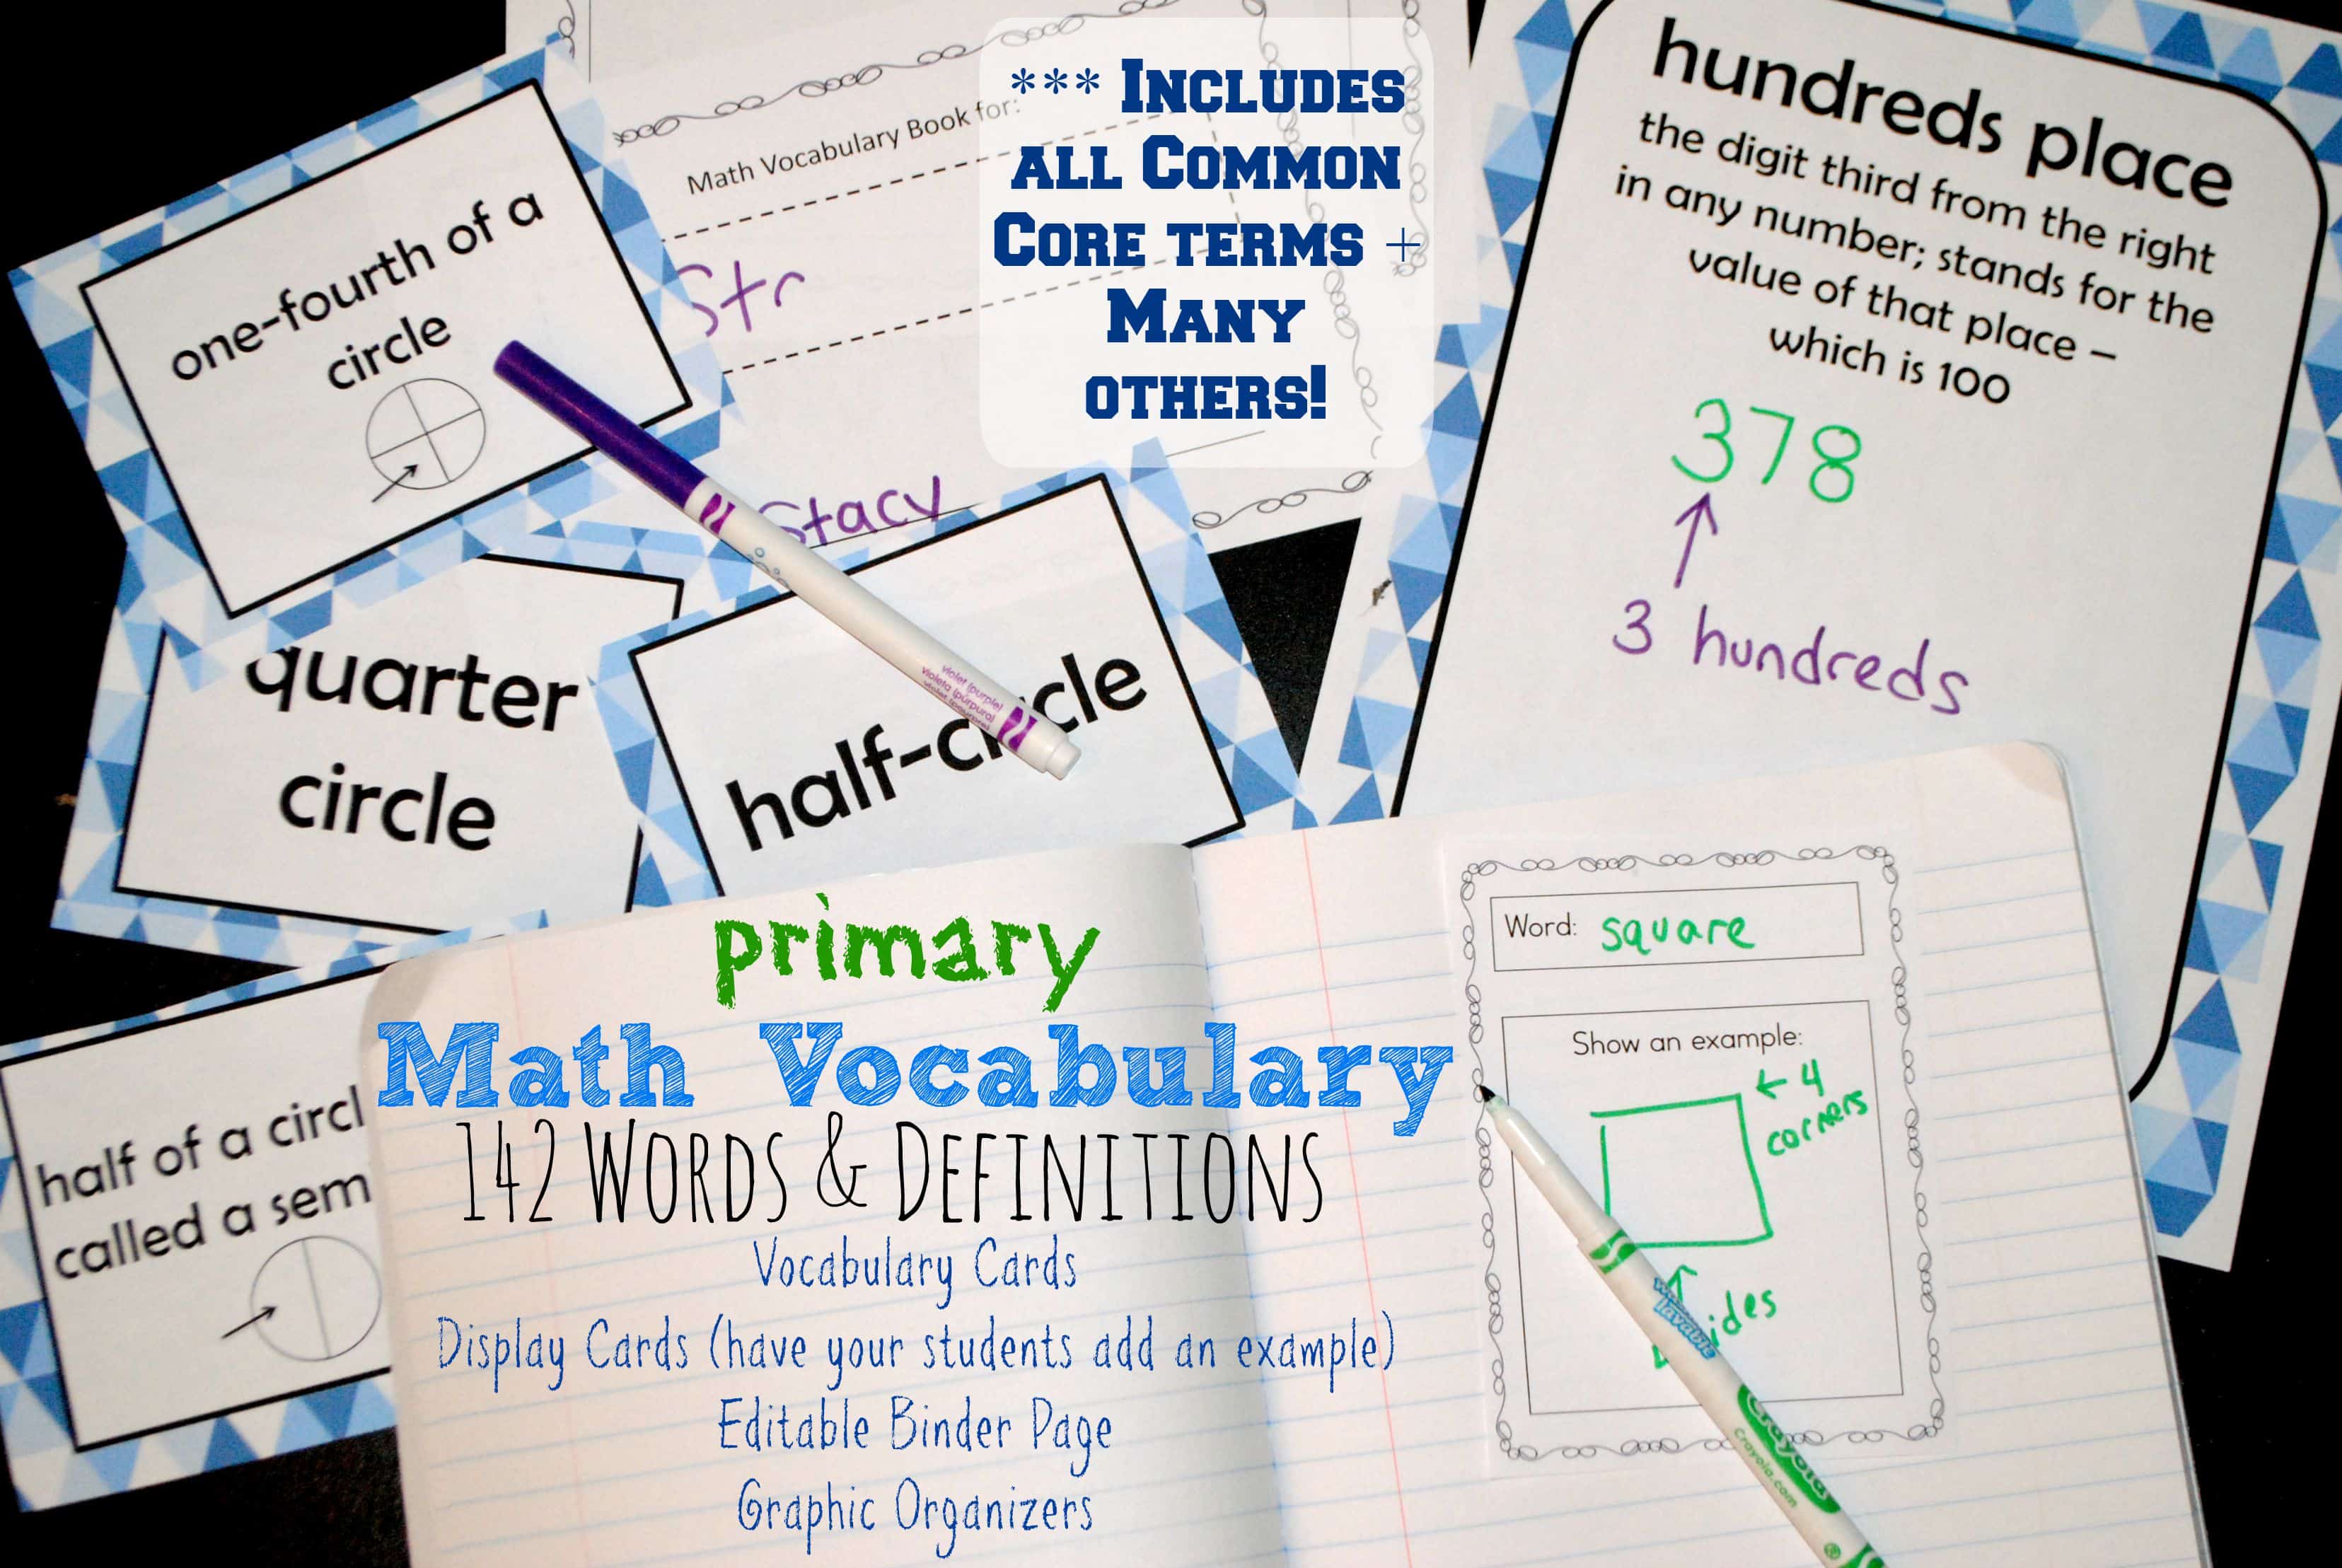 *** Includes
all Common
Core terms +
Many
others!
Math Vocabulary Book for:
Str
Stacy
one-fourth of a
circle
quarter
circle
half-circle
half of a circl
called a sem
hundreds place
the digit third from the right
in any number; stands for the
value of that place –
which is 100
378
3 hundreds
violet (purple)
violeta (púrpura)
violet (pourpre)
primary
Math Vocabulary
142 Words & Definitions
Vocabulary Cards
Display Cards (have your students add an example)
Editable Binder Page
Graphic Organizers
Word: square
Show an example:
← 4
corners
ides
Crayola
Crayola.com